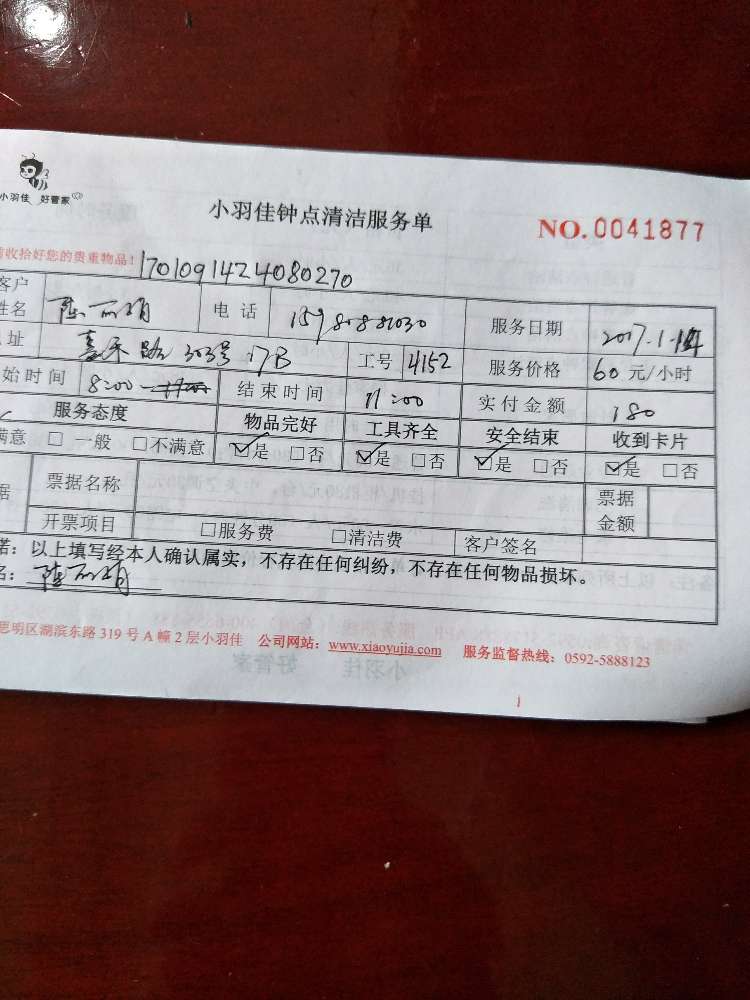 小羽佳 好管家
小羽佳钟点清洁服务单
NO.0041877
收拾好您的贵重物品！
1701091424080270
客户姓名 陈丽娟 电话 15980881030 服务日期 2017.1.
址 嘉禾路303号17B 工号 4152 服务价格 60 元/小时
始时间 8:00 结束时间 11:00 实付金额 180
服务态度 物品完好 工具齐全 安全结束 收到卡片
满意 □ 一般 □不满意 ☑是 □否 ☑是 □否 ☑是 □否 ☑是 □否
据 票据名称 票据金额
开票项目 □服务费 □清洁费 客户签名
诺：以上填写经本人确认属实，不存在任何纠纷，不存在任何物品损坏。
名：陈丽娟
思明区湖滨东路 319 号 A 幢 2 层小羽佳 公司网站：www.xiaoyujia.com 服务监督热线：0592-5888123